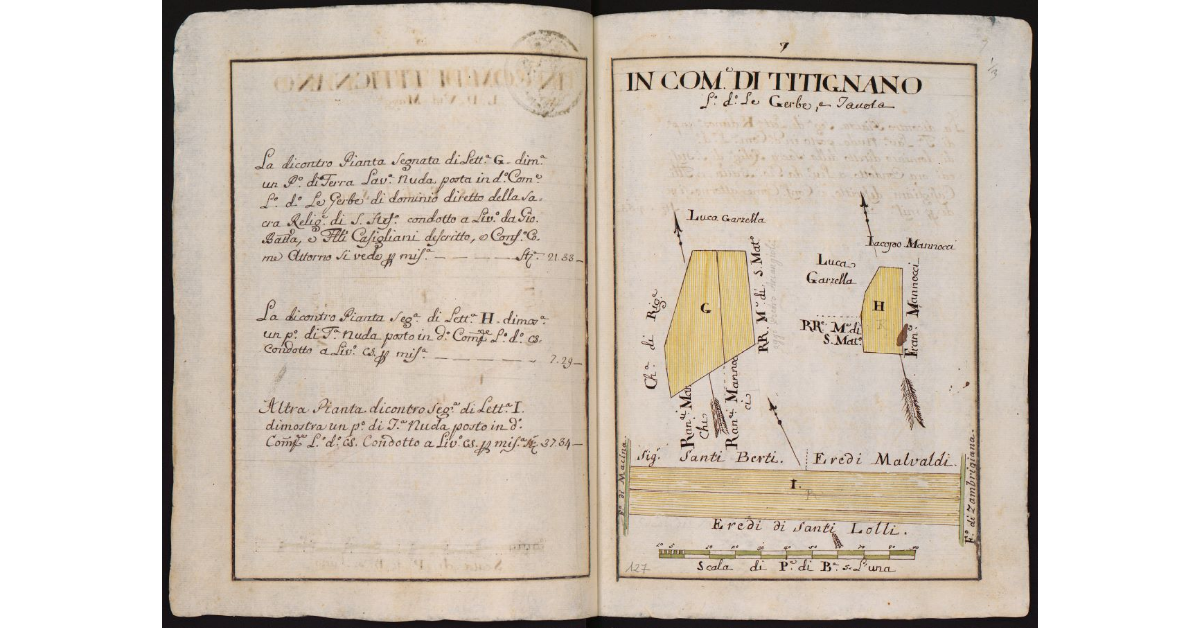 La dicontro Pianta Segnata di Lett.ª G. dim.ª
un P.º di Terra Lav.ª Nuda posta in d.º Com.º
L.º d.º Le Gerbe di dominio diretto della Sa
cra Relig.e di S. Stef.º condotto a Liv.º da Gio.
Batta, e Flli Casigliani descritto, e Conf.º Co
me Attorno si vede p mis.ª — — — — St. 21.33—
La dicontro Pianta Seg.ª di Lett.ª H. dimos.ª
un p.º di T.ª Nuda posto in d.º Com.e L.º d.º cs.
Condotto a Liv.º cs. p mis.ª — — — — — 7.29—
Altra Pianta dicontro Seg.ª di Lett.ª I.
dimostra un p.º di T.ª Nuda posto in d.º
Com.e L.º d.º cs. Condotto a Liv.º cs. p mis.ª St. 37.54—
7
IN COM.E DI TITIGNANO
L.º d.º Le Gerbe, e Tavola
Luca Garzella
Ch.ª di Rig.e
G
RR. M.e di S. Matº
Ran.ri Man
chi
Ran.ri Manno
ci
Iacopo Mannocci
Luca
Garzella
H
RR.e M.e di
S. Matº
Fran.º Mannocci
Sig. Santi Berti.
Eredi Malvaldi.
F.º di Macina
I.
F.º di Zambrigiana.
Eredi di Santi Lolli.
Scala di P.e di B.ª s. L'una
127